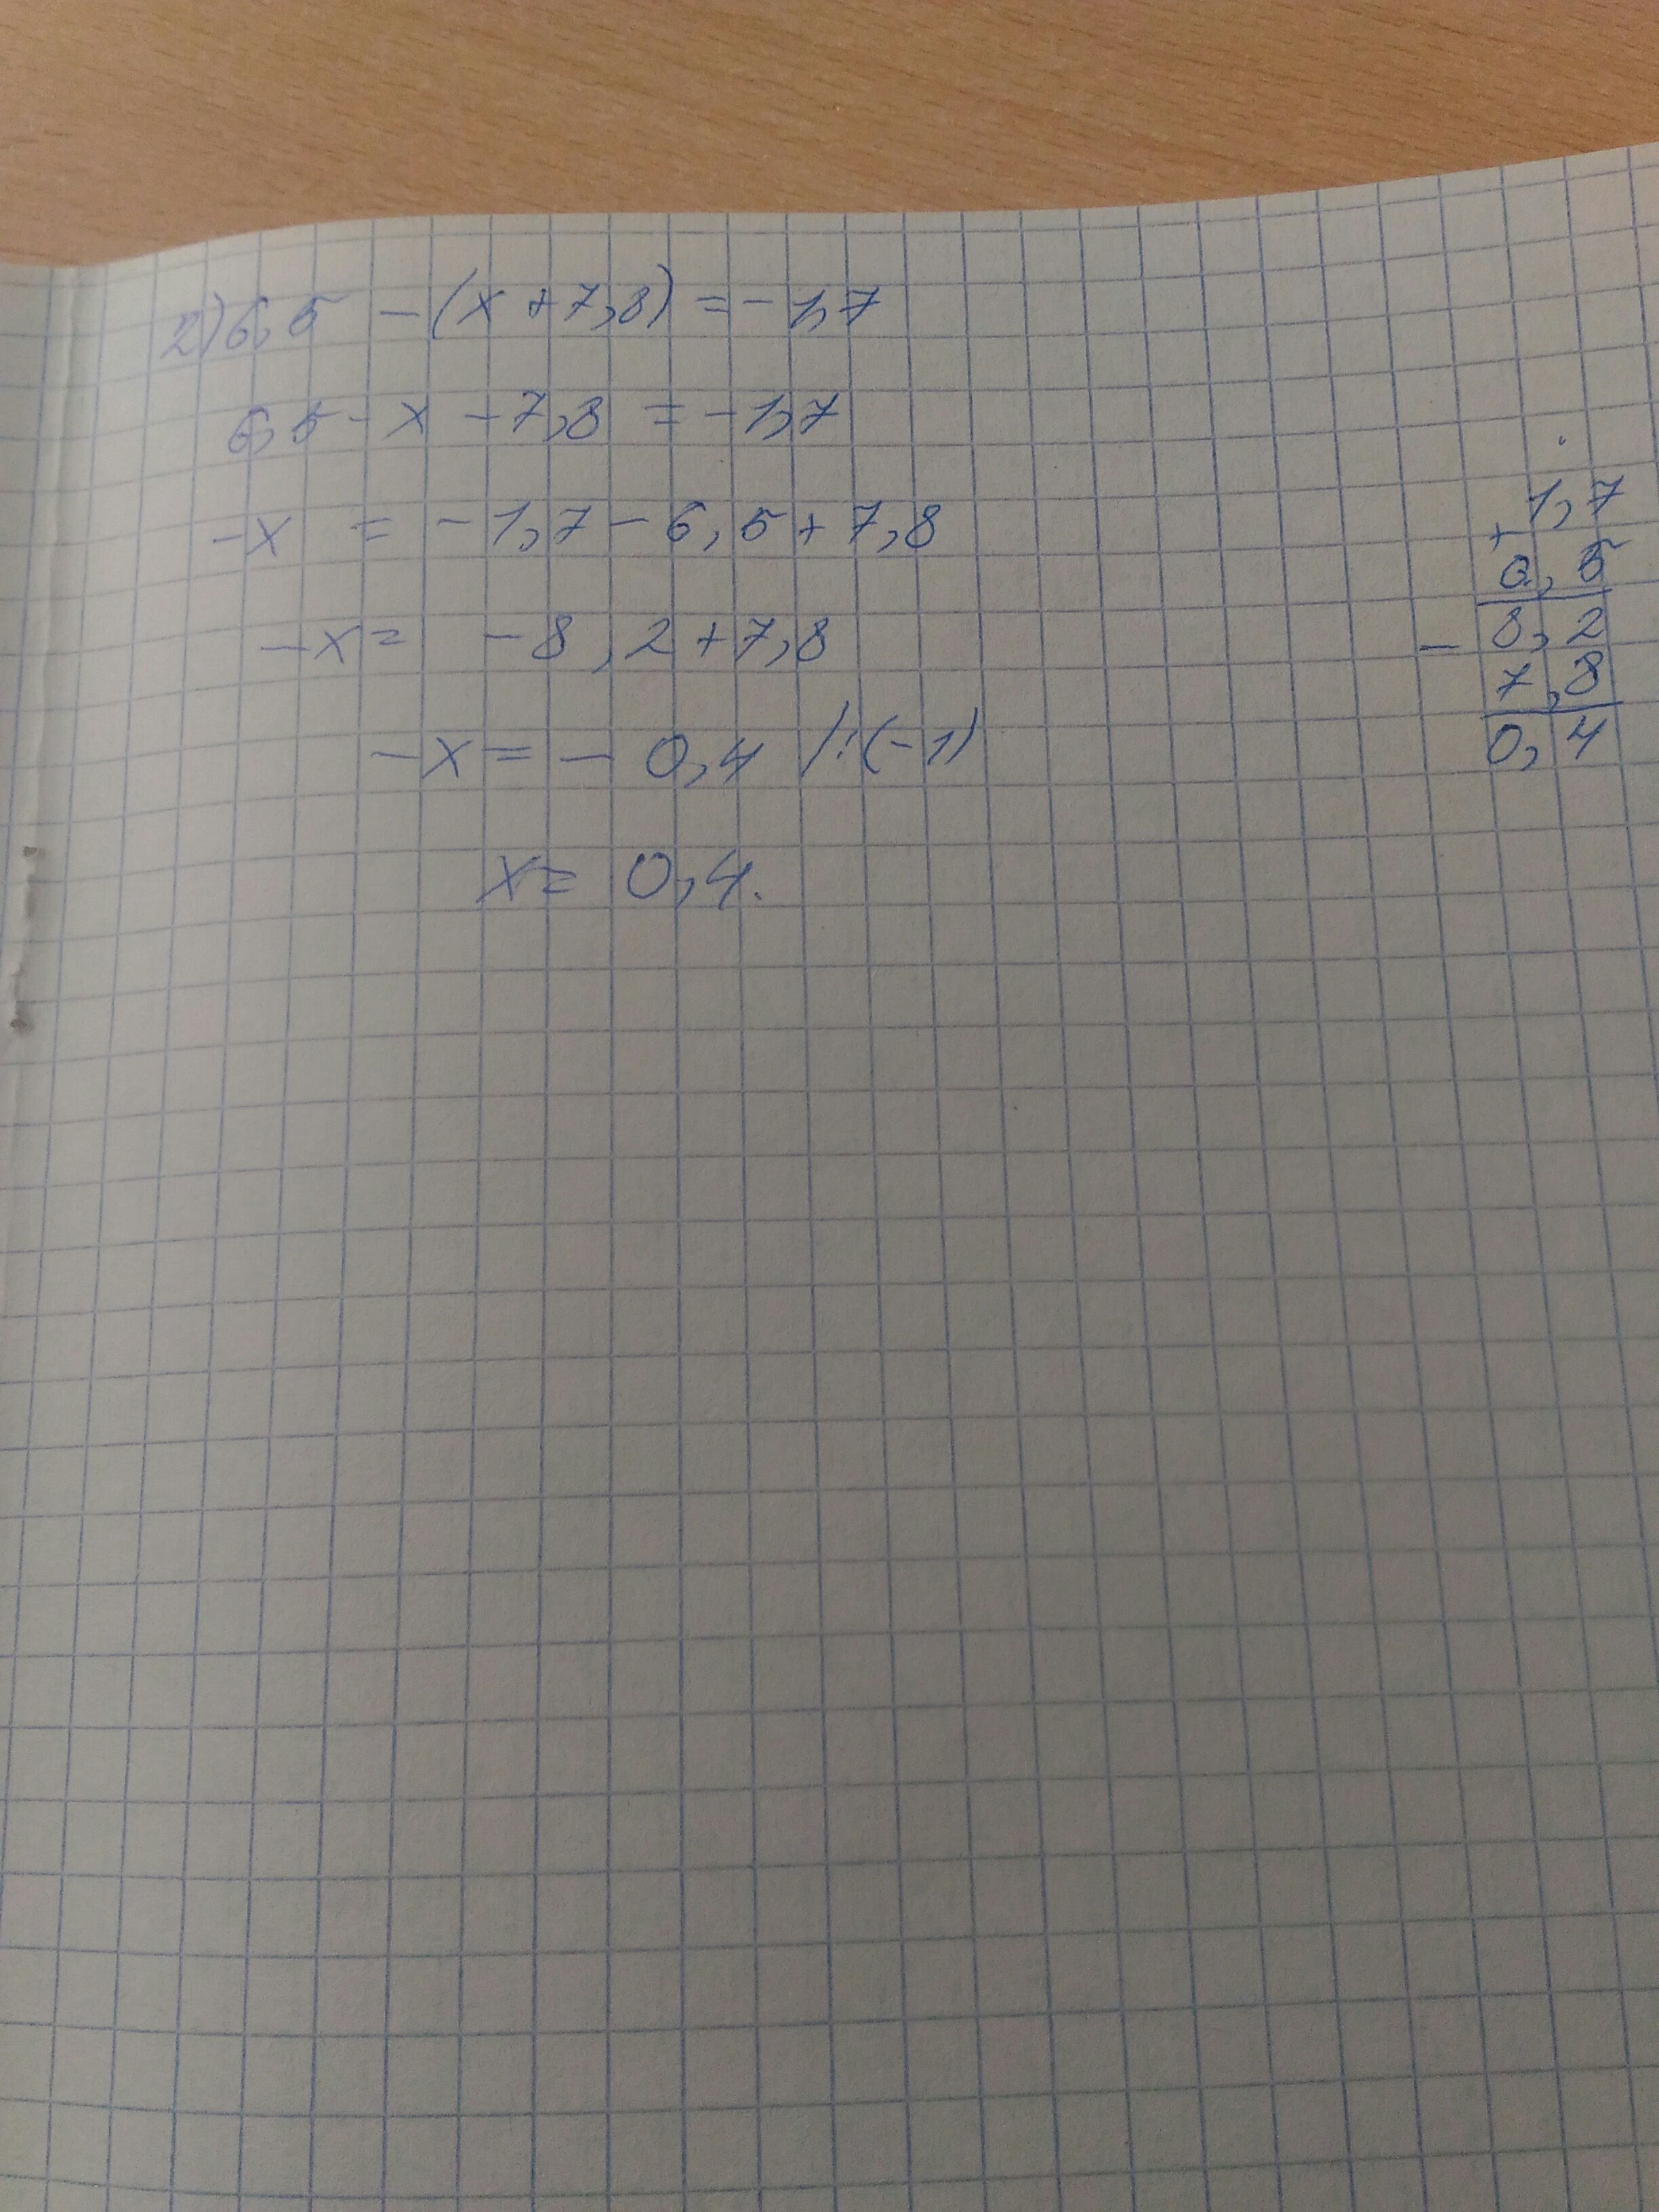 2) 6,5 - (x + 7,8) = - 1,7
6,5 - x - 7,8 = - 1,7
-x = - 1,7 - 6,5 + 7,8
-x = - 8,2 + 7,8
-x = - 0,4 /:(-1)
x = 0,4.
1,7
+
6,5
8,2
-
7,8
0,4